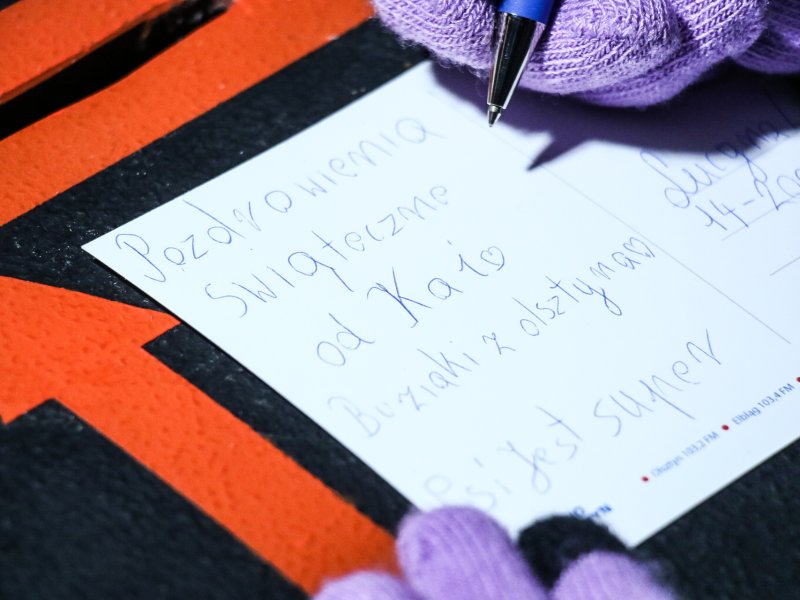 Pozdrowienia
Świąteczne
od Kai
Buziaki z olsztyna
jest super
14-200
Olsztyn 103,2 FM • Elbląg 103,4 FM